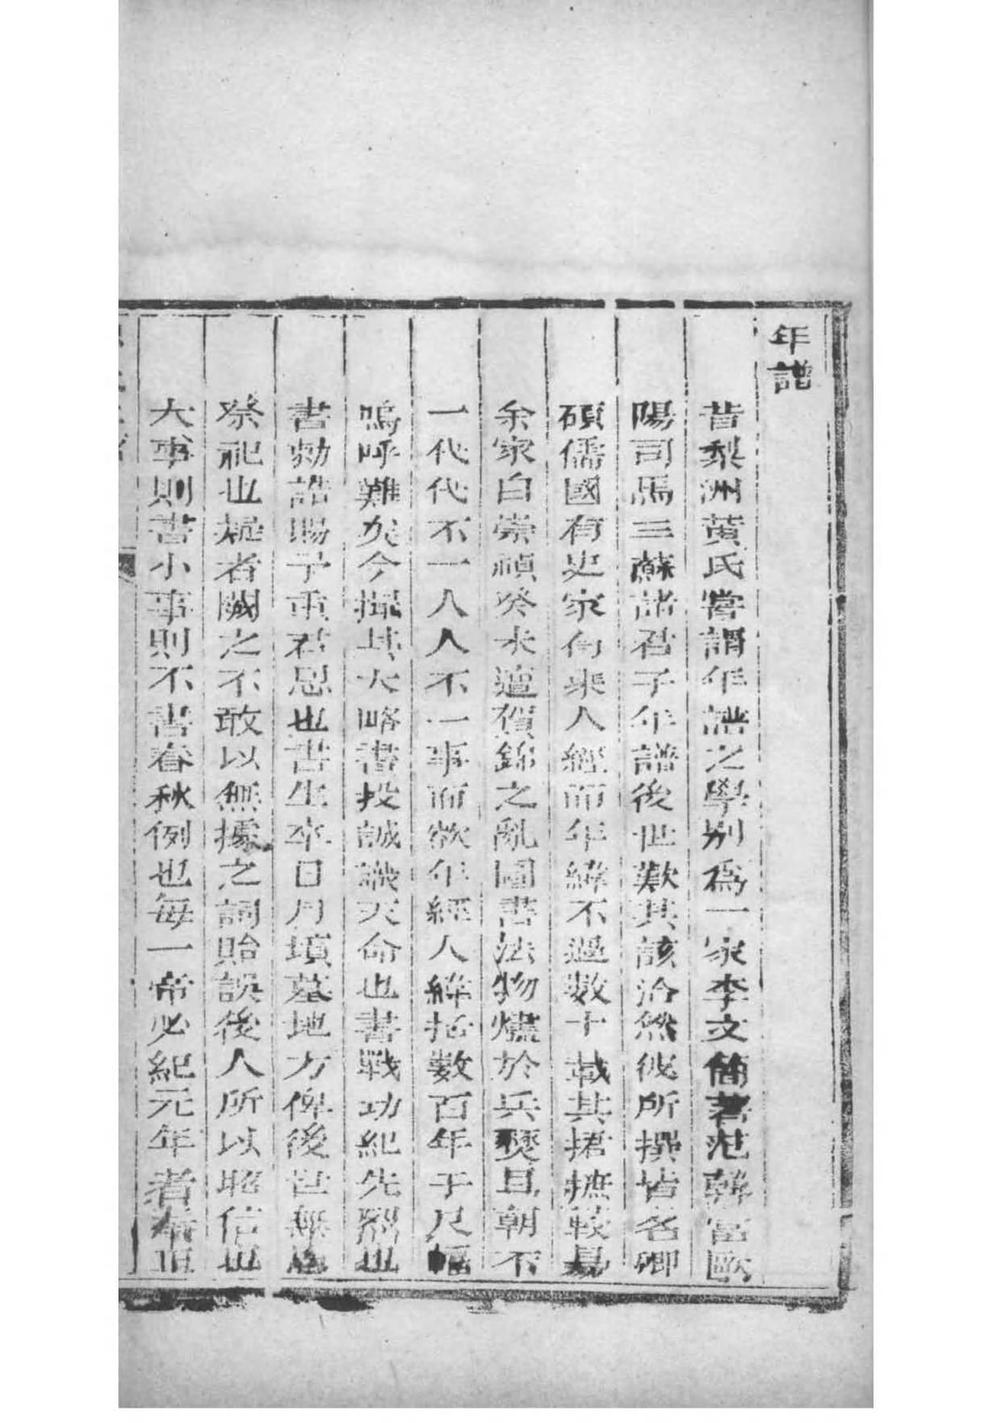 年譜
昔梨洲黃氏嘗謂年譜之學別爲一家李文簡著范韓富歐
陽司馬三蘇諸君子年譜後世歎其該洽然彼所撰皆名卿
碩儒國有史家有乘人經而年緯不過數十載其捃摭較易
余家自崇禎癸未遭賀錦之亂圖書法物燼於兵燹且朝不
一代代不一人人不一事而欲年經人緯括數百年于尺幅
嗚呼難矣今撮其大略書投誠識天命也書戰功紀先烈也
書勅誥賜予重君恩也書生卒日月墳墓地方俾後世無
祭祀也疑者闕之不敢以無據之詞貽誤後人所以昭信也
大事則書小事則不書春秋例也每一帝必紀元年者奉正